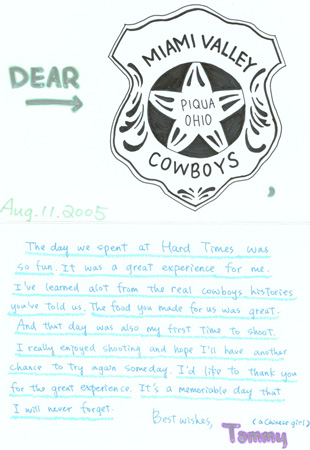 DEAR
MIAMI VALLEY
PIQUA
OHIO
COWBOYS
,
Aug.11.2005
The day we spent at Hard Times was
so fun. It was a great experience for me.
I've learned alot from the real cowboys histories
you've told us. The food you made for us was great.
And that day was also my first time to shoot.
I really enjoyed shooting and hope I'll have another
chance to try again someday. I'd like to thank you
for the great experience. It's a memoriable day that
I will never forget.
Best wishes,
(a Chinese girl)
Tammy